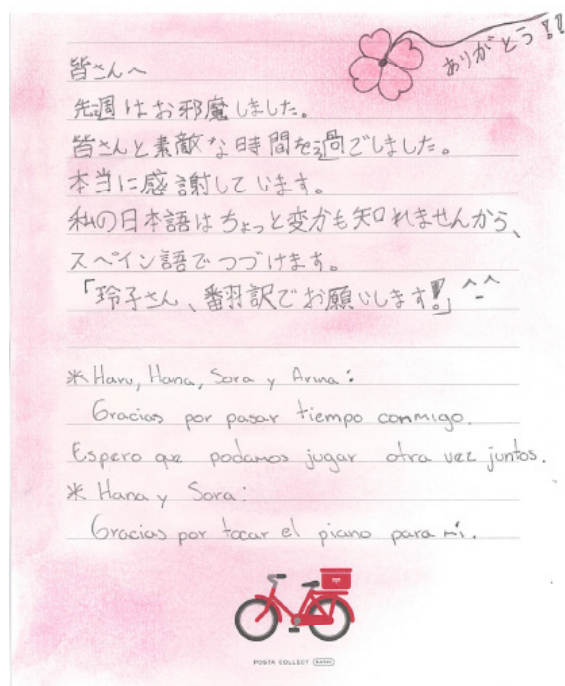 ありがとう!!
皆さんへ
先週はお邪魔しました。
皆さんと素敵な時間を過ごしました。
本当に感謝しています。
私の日本語はちょっと変かも知れませんから、
スペイン語でつづけます。
「玲子さん、翻訳でお願いします!!」^-^
* Haru, Hana, Sora y Arina:
Gracias por pasar tiempo conmigo.
Espero que podamos jugar otra vez juntos.
* Hana y Sora:
Gracias por tocar el piano para mi.
POSTA COLLECT BASIC